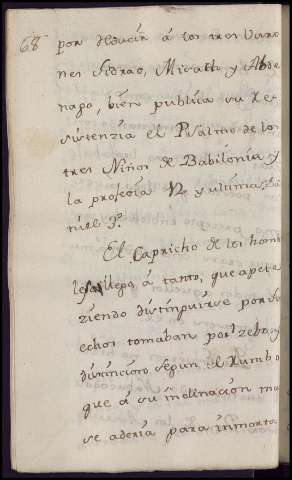 68
por deducir á los tres Varo
nes Sidrac, Misach y Abde
nago, bien publica su Re
sistenzia el Psalmo de los
tres Niños de Babilonia y
la profesia y ultima, Da
niel 3.º
El Capricho de los hom
llegó á tanto, que apete
ziendo distinguirse por de
echos tomaban por zebo, y
distincion segun el Rumbo
que á su inclinacion ma
se aderia para inmorta